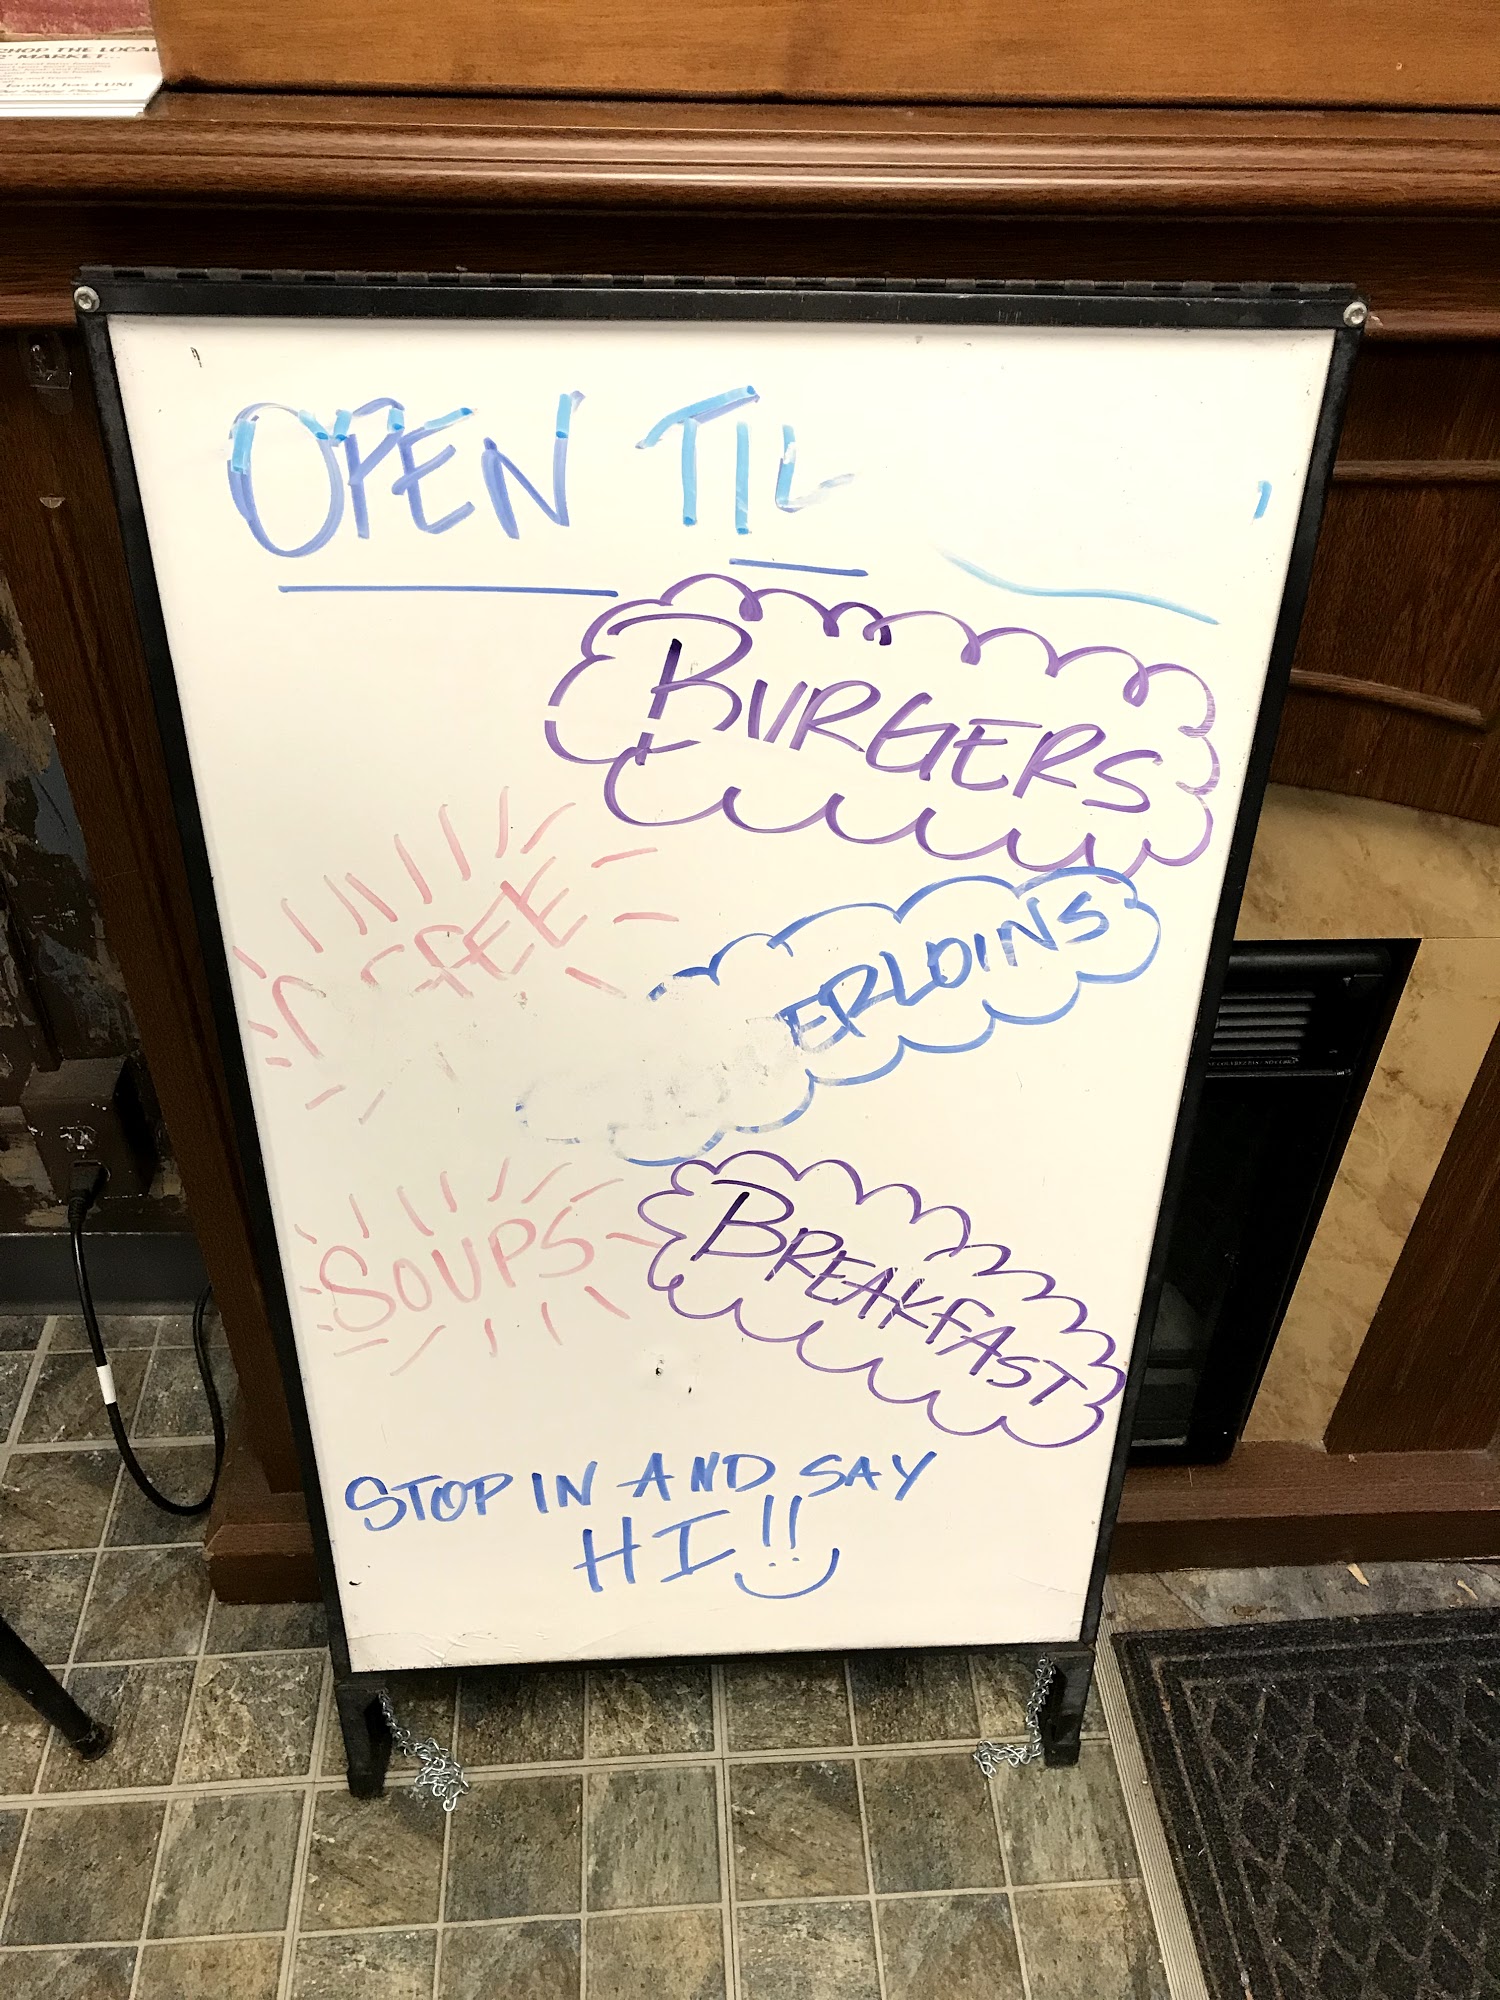 SHOP THE LOCAL
MARKET...
family has FUN!
OPEN TIL
BURGERS
FEE
ERLOINS
SOUPS
BREAKFAST
STOP IN AND SAY
HI!!